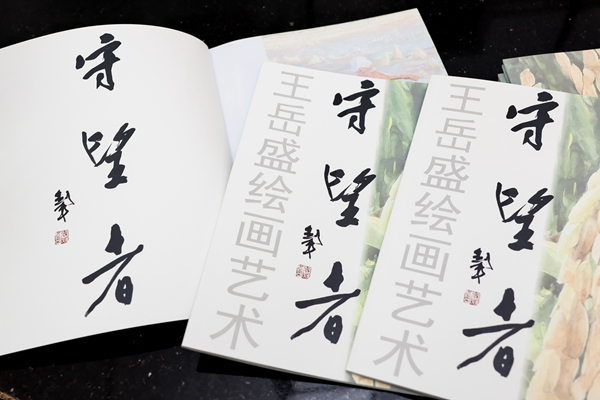 守望者
王岳盛绘画艺术
守望者
王岳盛绘画艺术
守望者